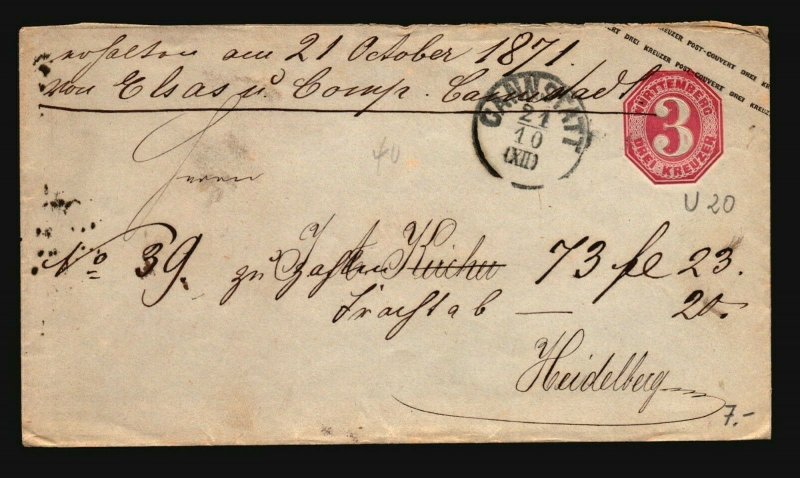 erhalten am 21 October 1871.
von Elsas u Comp. Cannstadt
POST-COUVERT DREI KREUZER POST-COUVERT DREI KREUZER
WÜRTTEMBERG
3
DREI KREUZER
CANNSTATT
21
10
(XII)
40
U 20
Herrn
No 39. zu zahlen Kircher 73 fl 23.
Fracht ab — 20.
Heidelberg
7.-